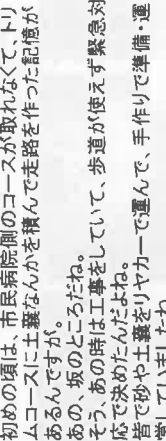 初めの頃は、市民病院側のコースが取れなくて、トリ
ムコースに土嚢なんかを積んで走路を作った記憶が
あるんですが。
あの、坂のところだね。
そう、あの時は工事をしていて、歩道が使えず緊急対
応で決めたんだよね。
皆で砂や土嚢をリヤカーで運んで、手作りで準備・運